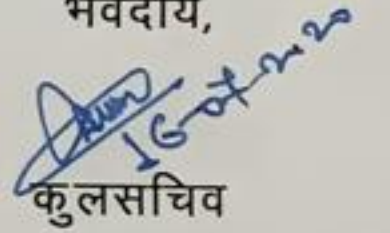 भवदीय,
16-07-2020
कुलसचिव